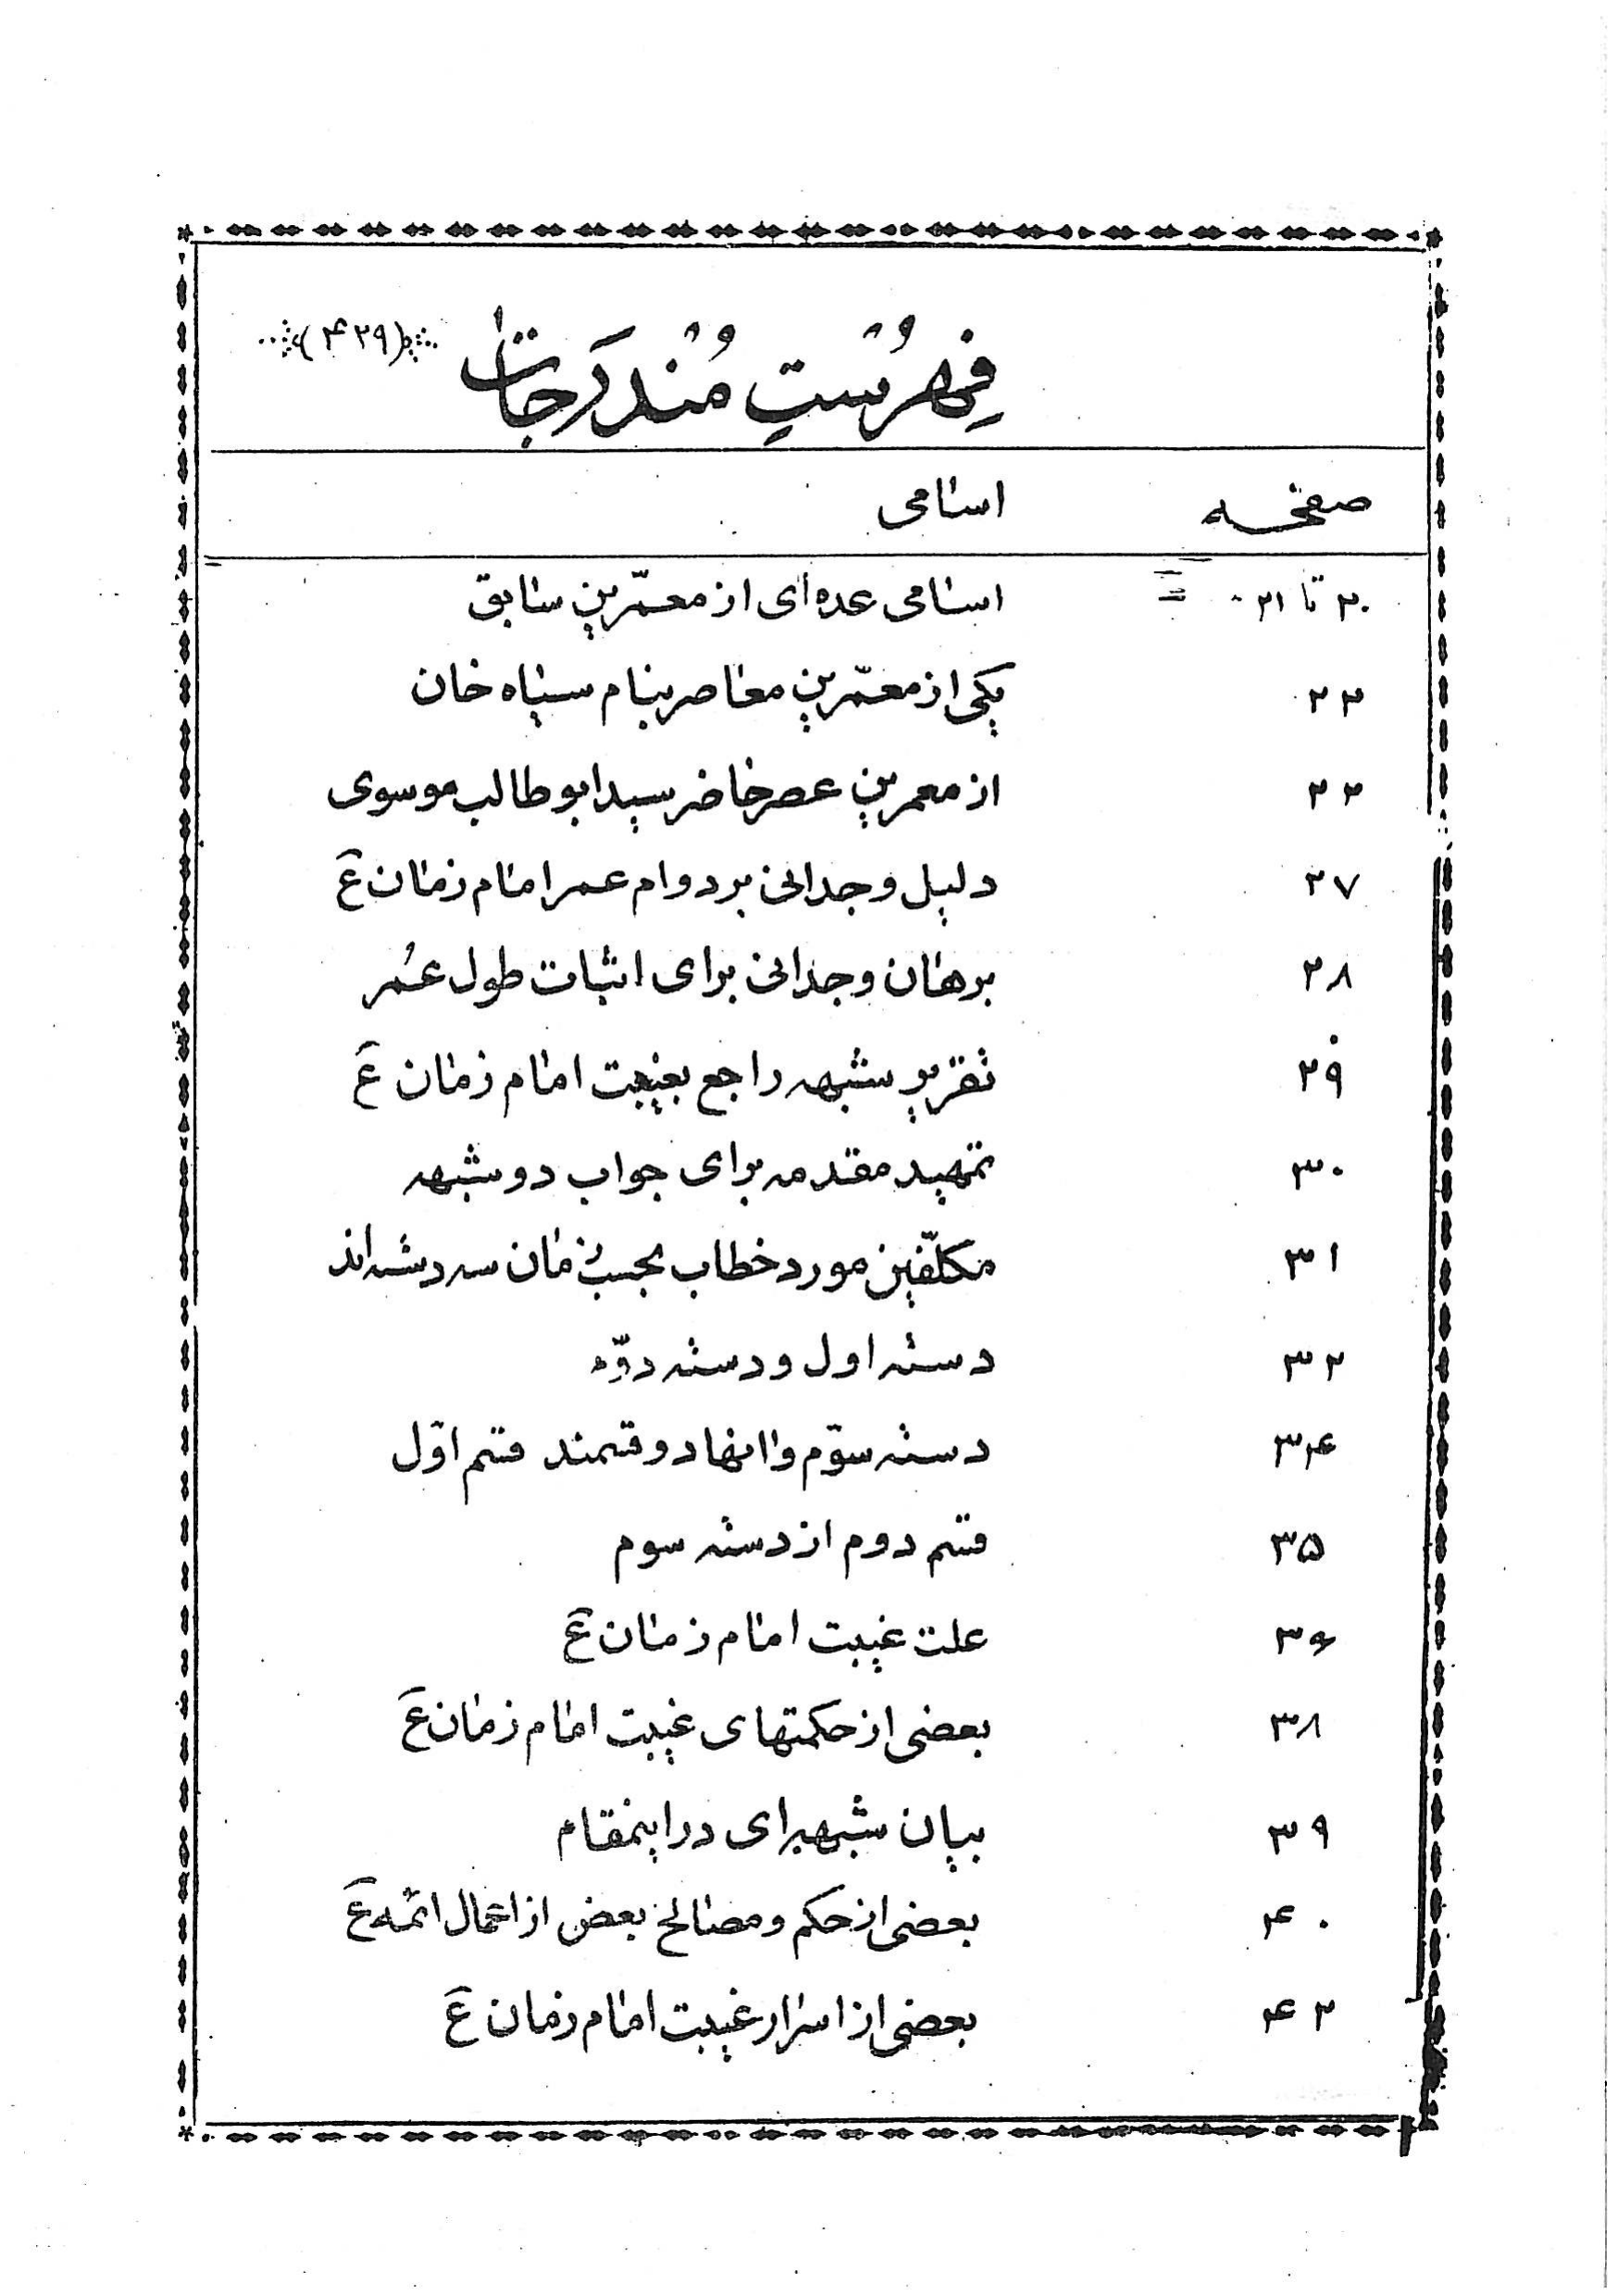 فِهرُستِ مُندَرَجات (۴۲۹)
صفحه اسامی
۲۰ تا ۲۱ اسامی عده‌ای از معمّرین سابق
۲۲ یکی از معمّرین معاصر بنام سیاه خان
۲۲ از معمرین عصر حاضر سید ابوطالب موسوی
۲۷ دلیل وجدانی بر دوام عمر امام زمان ع
۲۸ برهان وجدانی برای اثبات طول عُمر
۲۹ تقریر شبهه راجع بغیبت امام زمان ع
۳۰ تمهید مقدمه برای جواب دو شبهه
۳۱ مکلّفین مورد خطاب بحسب زمان سه دسته‌اند
۳۲ دسته اول و دسته دوّم
۳۴ دسته سوّم و اانها دو قسمند قسم اوّل
۳۵ قسم دوم از دسته سوم
۳۶ علت غیبت امام زمان ع
۳۸ بعضی از حکمتهای غیبت امام زمان ع
۳۹ بیان شبهه‌ای در اینمقام
۴۰ بعضی از حکم و مصالح بعض از اعمال ائمه ع
۴۲ بعضی از اسرار غیبت امام زمان ع